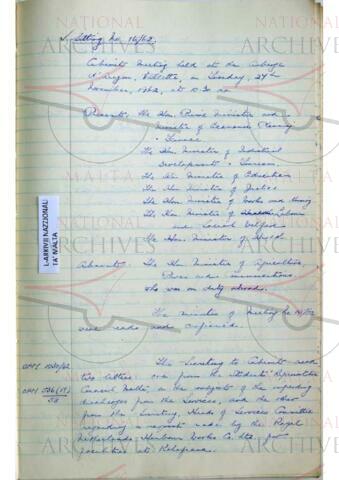 Sitting No. 16/62
Cabinet Meeting held at the Auberge
d'Aragon, Valletta, on Tuesday, 27th
November, 1962, at 10.30 am
Present: The Hon. Prime Minister and
Minister of Economic Planning
& Finance
The Hon. Minister of Industrial
Development & Tourism
The Hon. Minister of Education
The Hon. Minister of Justice
The Hon. Minister of Works and Housing
The Hon. Minister of Labour
and Social Welfare
The Hon. Minister of Health
Absent: The Hon. Minister of Agriculture,
Power and Communications,
who was on duty abroad.
The minutes of Meeting No
were read and confirmed.
The Secretary to Cabinet read
two letters: one from the
Council Malta, on the subject of the impending
discharges from the Services, and the other
from the Secretary, Heads of Services Committee
regarding request made by the Royal
Netherlands Harbour Works Co. Ltd. for
facilities at Kalafrana.
L-ARKIVJI NAZZJONALI
TA' MALTA
NATIONAL
ARCHIVES